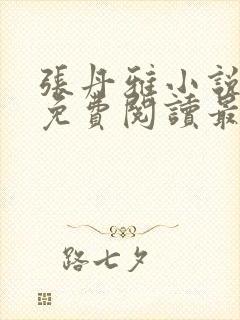 張丹雅小說
免費閱讀最
路七夕